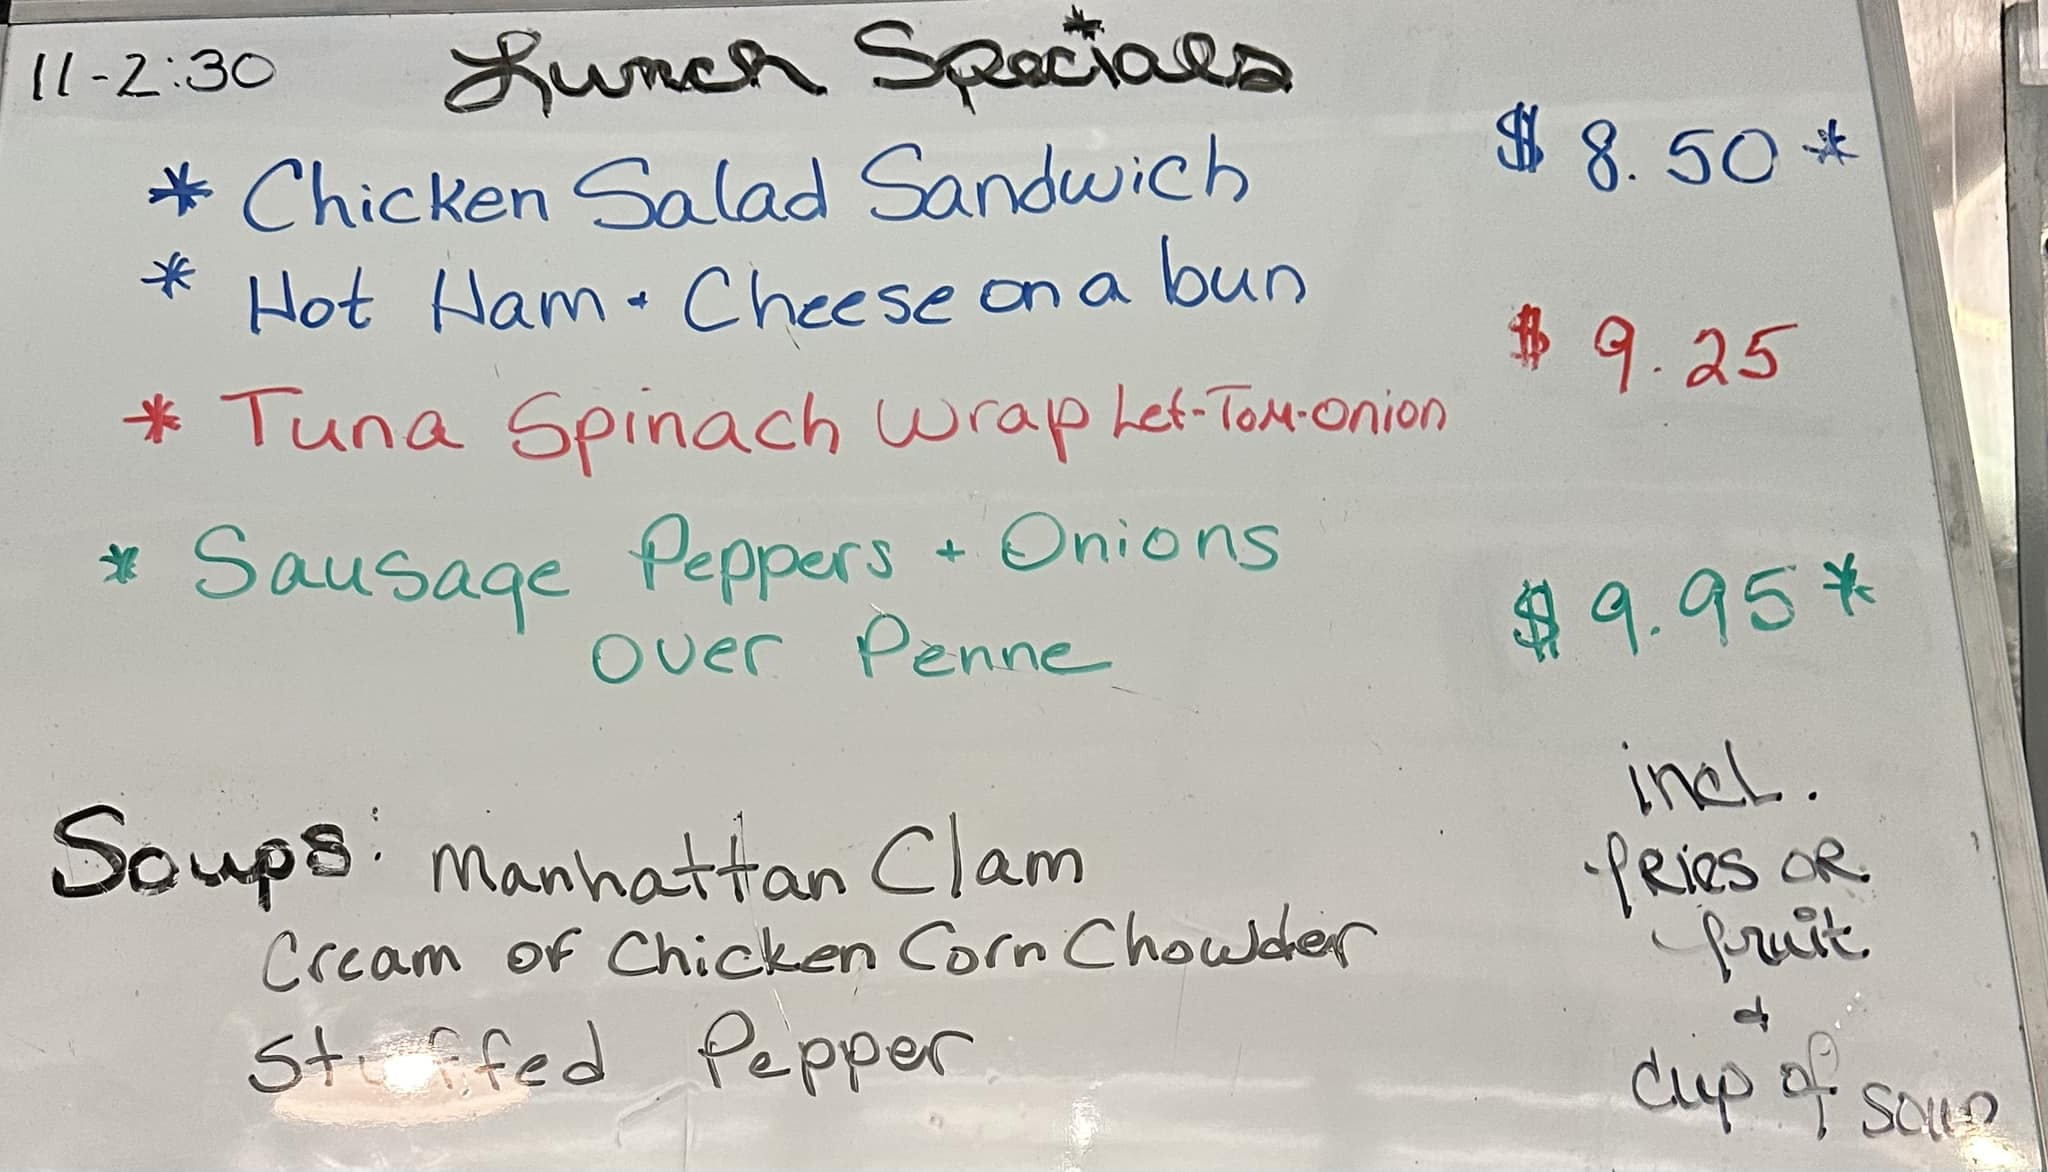 11-2:30 Lunch Specials
* Chicken Salad Sandwich $ 8.50 *
* Hot Ham + Cheese on a bun
$ 9.25
* Tuna Spinach Wrap Let-Tom-Onion
* Sausage Peppers + Onions
over Penne
$ 9.95 *
Soups: Manhattan Clam
Cream of Chicken Corn Chowder
Stuffed Pepper
incl.
fries or
fruit
&
cup of soup